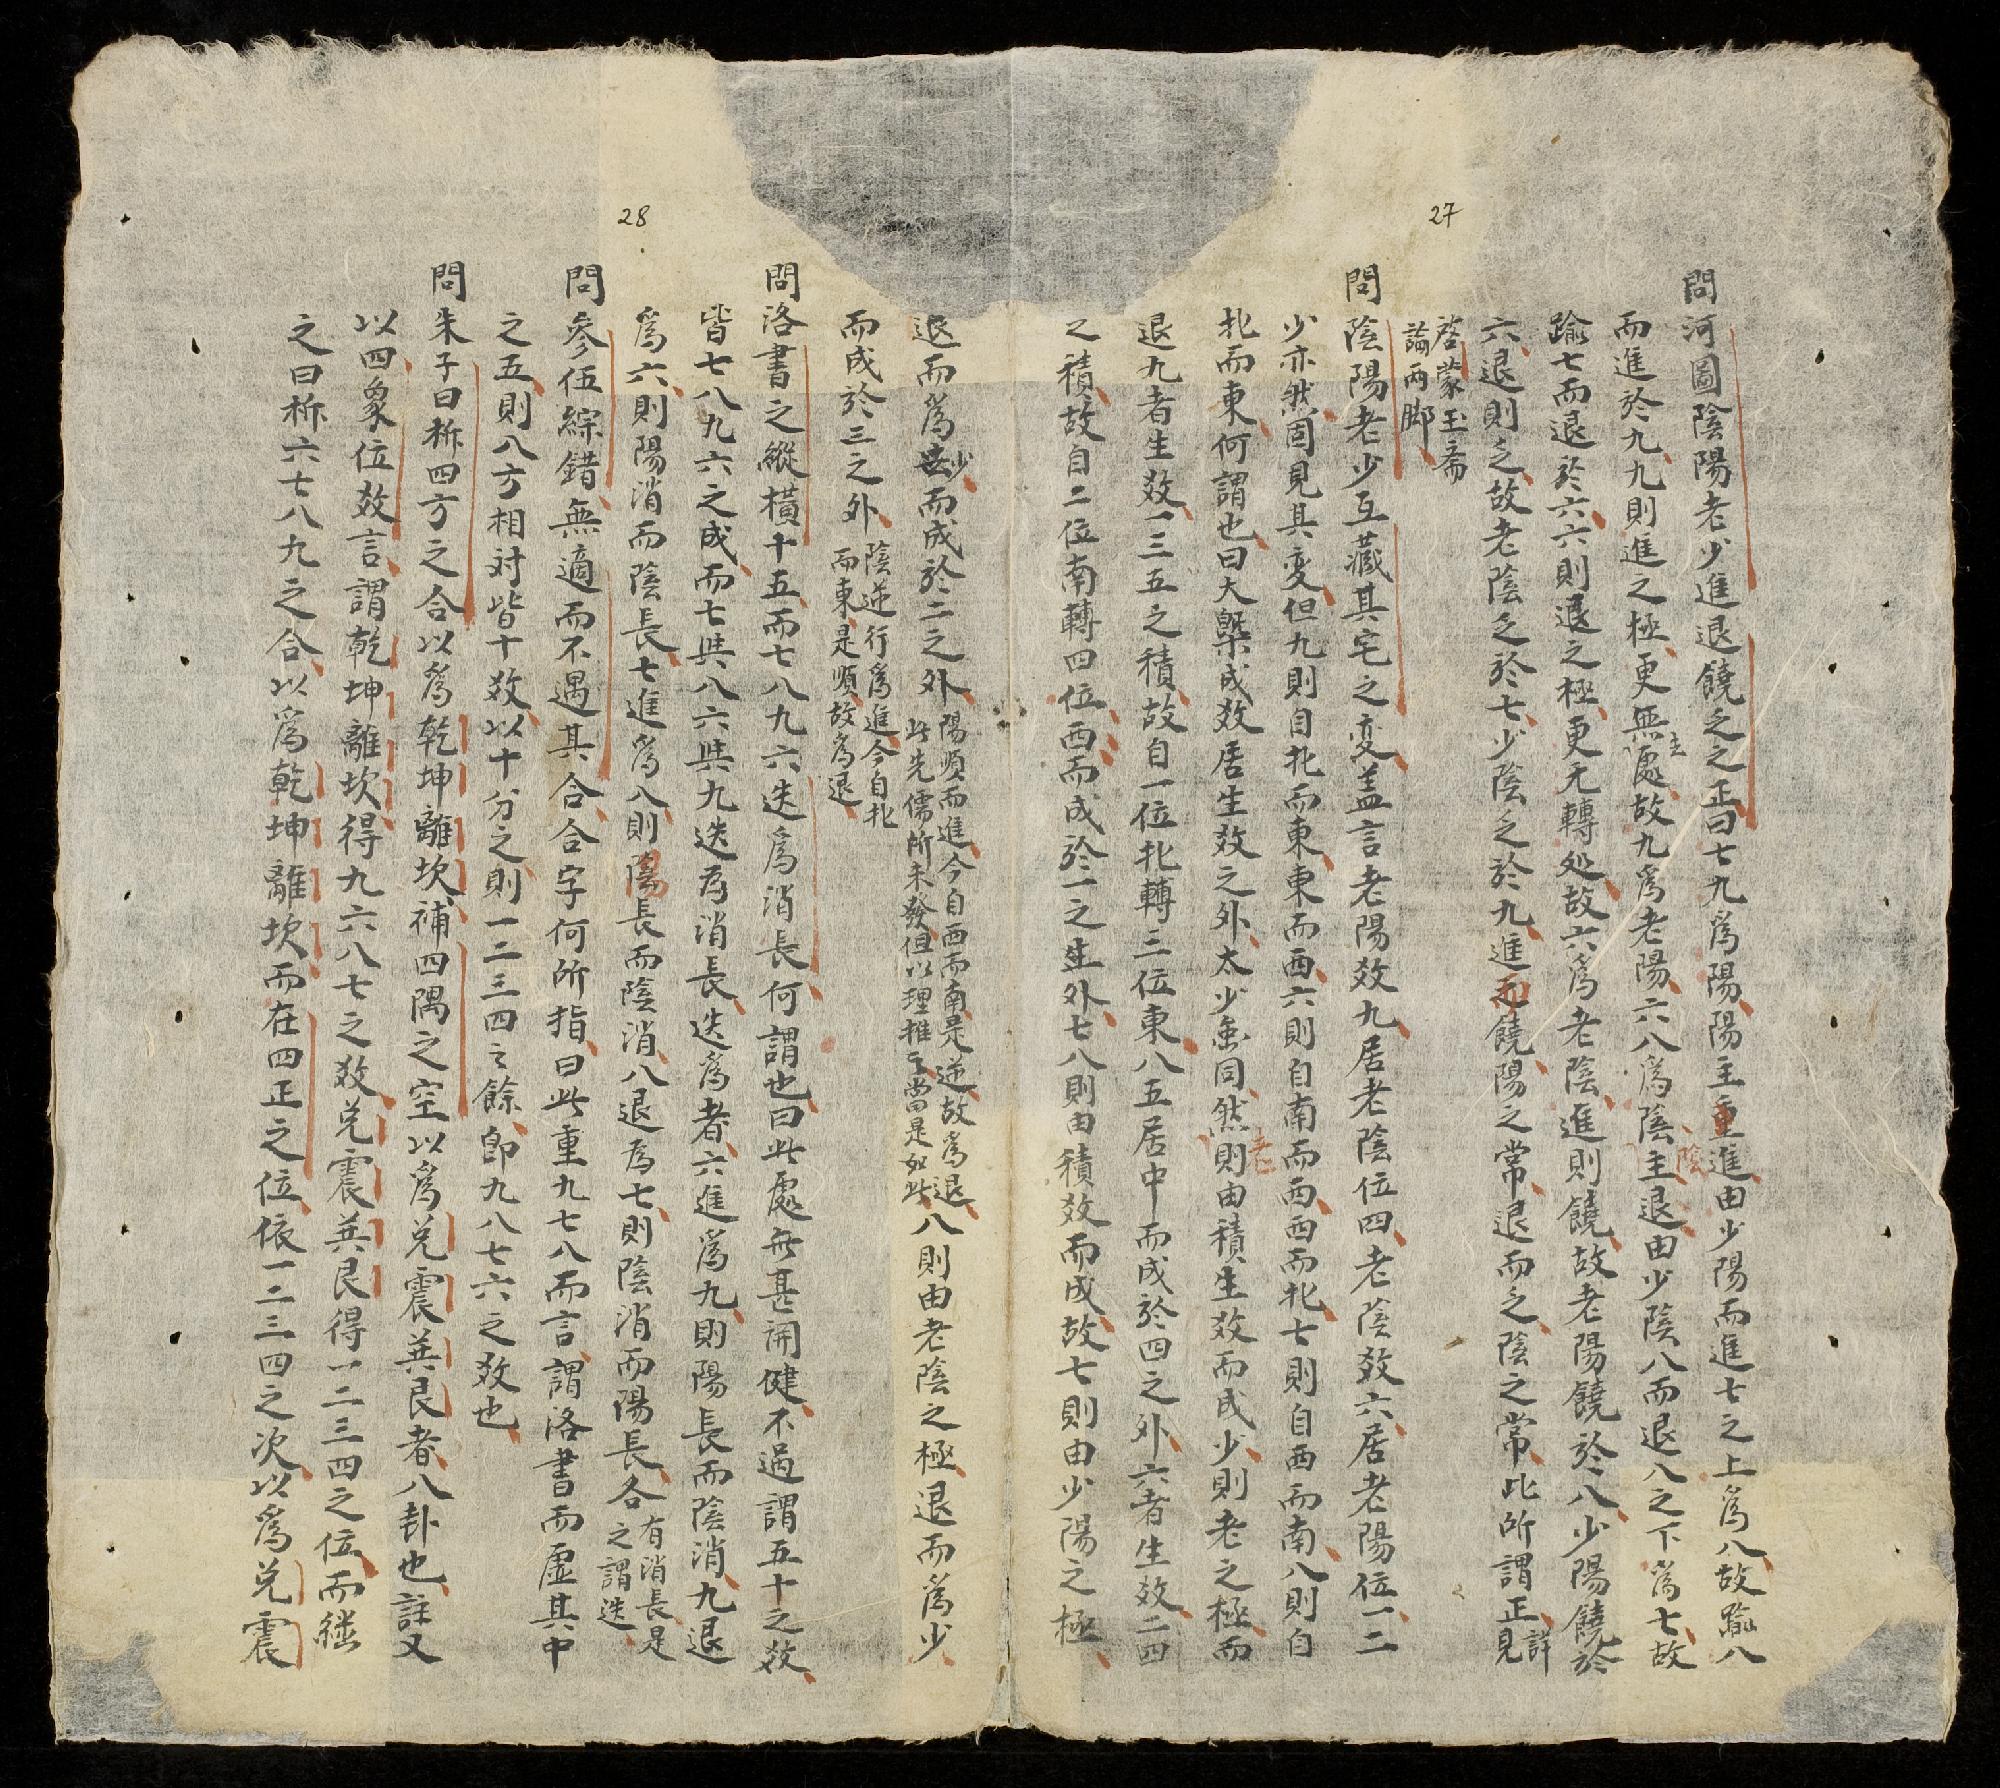 27
問河圖陰陽老少進退饒乏之正曰七九爲陽陽主重進由少陽而進七之上爲八故踰八
而進於九九則進之極更無處故九爲老陽六八爲陰陰主退由少陰八而退八之下爲七故
踰七而退於六六則退之極更无轉処故六爲老陰進則饒故老陽饒於八少陽饒於
六退則乏故老陰乏於七少陰乏於九進而饒陽之常退而乏陰之常此所謂正詳見
啓蒙玉斎
論兩脚
問陰陽老少互藏其宅之変盖言老陽数九居老陰位四老陰数六居老陽位一二
少亦然固見其変但九則自北而東東而西六則自南而西西而北七則自西而南八則自
北而東何謂也曰大槩成数居生数之外太少虽同然則老由積生数而成少則老之極而
退九者生数一三五之積故自一位北轉三位東八五居中而成於四之外六者生数二四
之積故自二位南轉四位西而成於一之生外七八則由積数而成故七則由少陽之極
28
退而爲少而成於二之外陽順而進今自西而南是逆故爲退
此先儒所未發但以理推之當是如此八則由老陰之極退而爲少
而成於三之外陰逆行爲進今自北
而東是順故爲退
問洛書之縱橫十五而七八九六迭爲消長何謂也曰此處無甚関健不過謂五十之数
皆七八九六之成而七與八六與九迭为消長迭爲者六進爲九則陽長而陰消九退
爲六則陽消而陰長七進爲八則陽長而陰消八退爲七則陰消而陽長各有消長是
之謂迭
問參伍綜錯無適而不遇其合合字何所指曰此重九七八而言謂洛書而虛其中
之五則八方相对皆十数以十分之則一二三四之餘卽九八七六之数也
問朱子曰柝四方之合以爲乾坤離坎補四隅之空以爲兌震㢲艮者八卦也註又
以四象位数言謂乾坤離坎得九六八七之数兌震㢲艮得一二三四之位而繼
之曰柝六七八九之合以爲乾坤離坎而在四正之位依一二三四之次以爲兌震